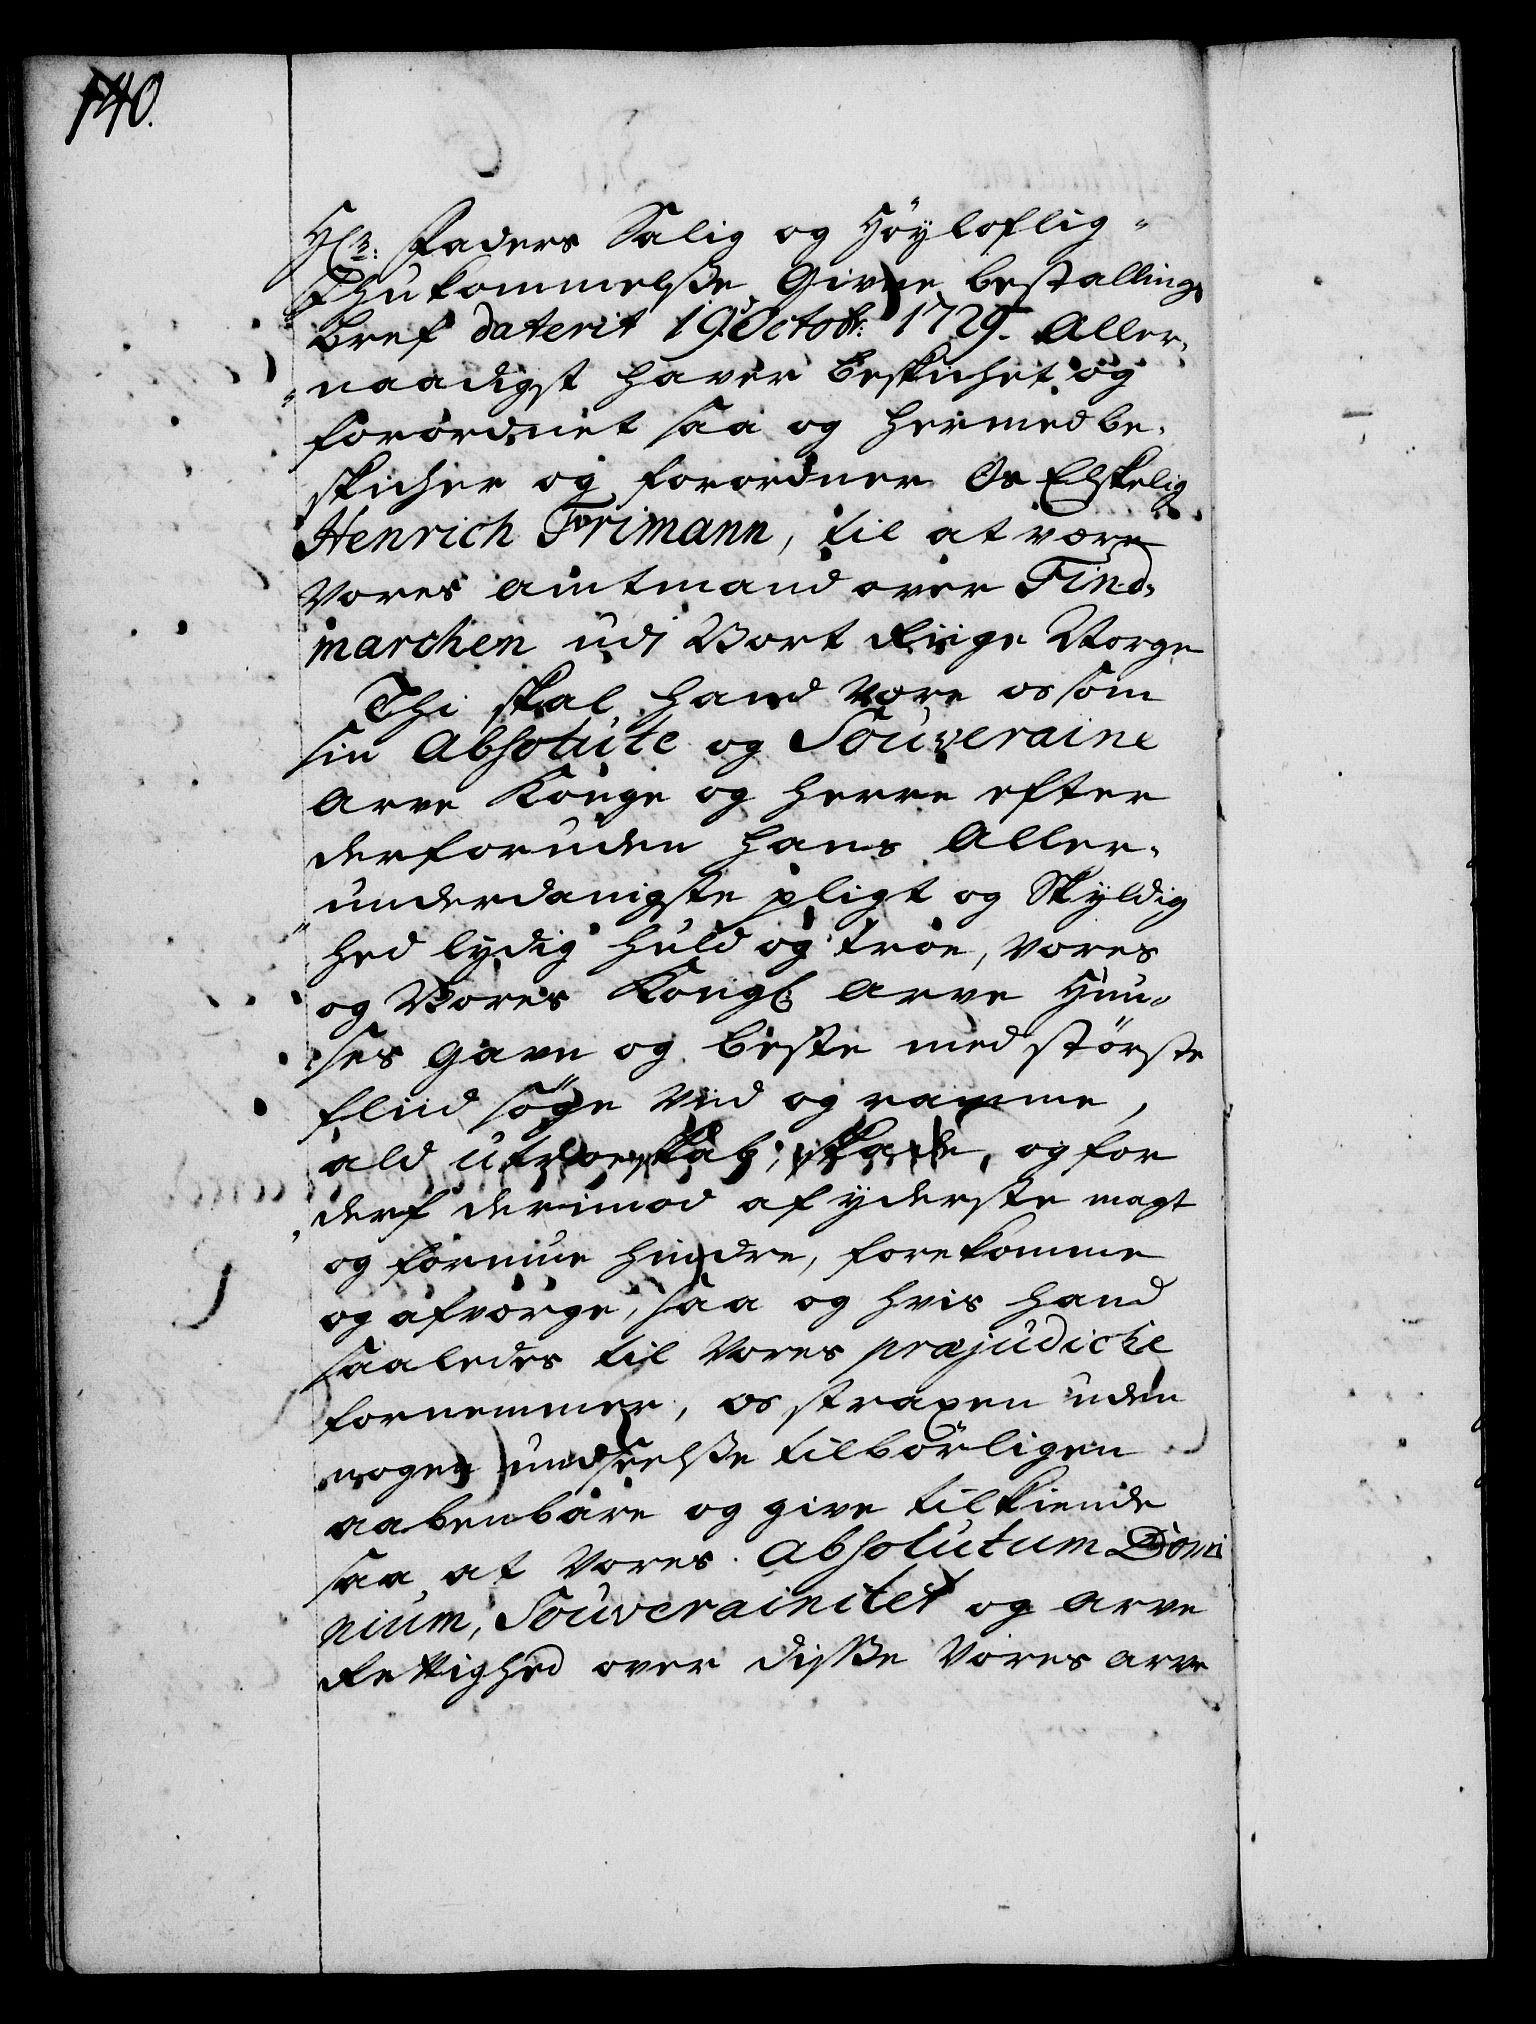 140.
Hr: Faders Salig og Höyloflig-
Ihukommelsse Givne bestallings
Bref daterit 19 Octobr: 1729. Aller-
naadigst haver beskichet og
forordnet saa og hermed be-
skicher og forordner Os Elskelig
Henrich Frimann, til at være
Vores amtmand over Find-
marchen udi Vort Riige Norge
Thi skal hand være os som
sin Absolute og Souveraine
Arve Konge og Herre efter
derforuden hans Aller-
underdanigste pligt og Skyldig
hed lydig huld og troe, Vores
og Vores Kongl: Arve Huu-
ses gavn og beste med störste
fliid söge Viid og ramme,
ald utroeskab, skade, og for
derf derimod af yderste magt
og formue hindre, forekomme
og afverge, saa og hvis hand
saaledes til Vores præjudicie
fornemmer, os straxen uden
nogen undseelsse tilbörligen
aabenbare og give tilkiende
saa at Vores Absolutum Domi
nium, Souverainitet og Arve
Rettighed over disse Vores arve